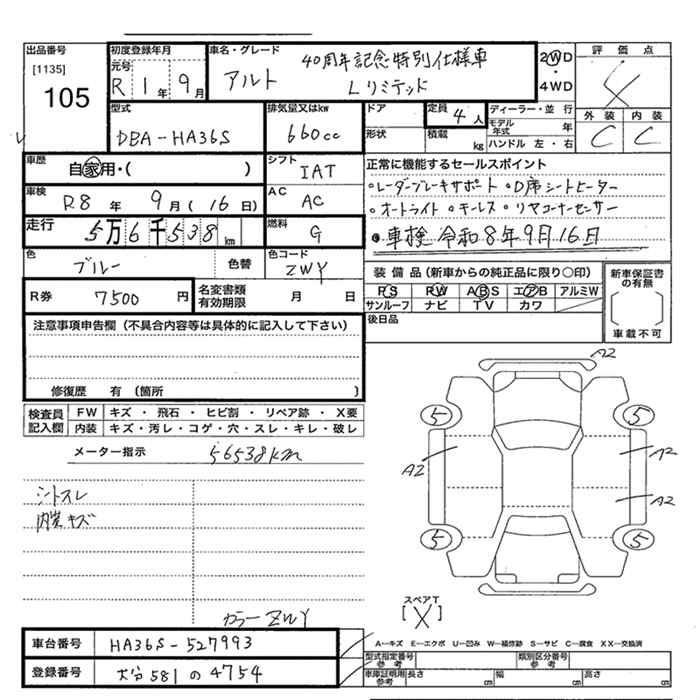 出品番号
[1135]
105
初度登録年月
元号
R 1年 9月
車名・グレード
アルト 40周年記念特別仕様車
Lリミテッド
2WD
4WD
評価点
X
外装 内装
C C
型式
DBA-HA36S
排気量又はkw
660cc
ドア
形状
定員 4人
積載 kg
ディーラー・並行
モデル年式 年
ハンドル 左・右
車歴
自家用・( )
シフト
IAT
正常に機能するセールスポイント
○レーダーブレーキサポート ○D席シートヒーター
○オートライト ○キーレス ○リヤコーナーセンサー
◎車検 令和8年9月16日
車検
R8年 9月(16日)
AC
AC
走行
5万6千538km
燃料
G
色
ブルー
色替
色コード
ZWY
R券 7500円
名変書類有効期限 月 日
装備品(新車からの純正品に限り○印)
PS PW ABS エアB アルミW
サンルーフ ナビ TV カワ
後日品
新車保証書の有無
車載不可
注意事項申告欄(不具合内容等は具体的に記入して下さい)
修復歴 有(箇所 )
検査員記入欄
FW キズ・飛石・ヒビ割・リペア跡・X要
内装 キズ・汚レ・コゲ・穴・スレ・キレ・破レ
メーター指示 56538km
シトスレ
内装キズ
カラーZWY
A2
5 5
A2 A2
A2
5 5
スペアT
[X]
車台番号 HA36S-527993
登録番号 大分 581 の 4754
A―キズ E―エクボ U―凹み W―補修跡 S―サビ C―腐食 XX―交換済
型式指定番号参考
類別区分番号参考
車庫証明用参考 長さ cm 幅 cm 高さ cm